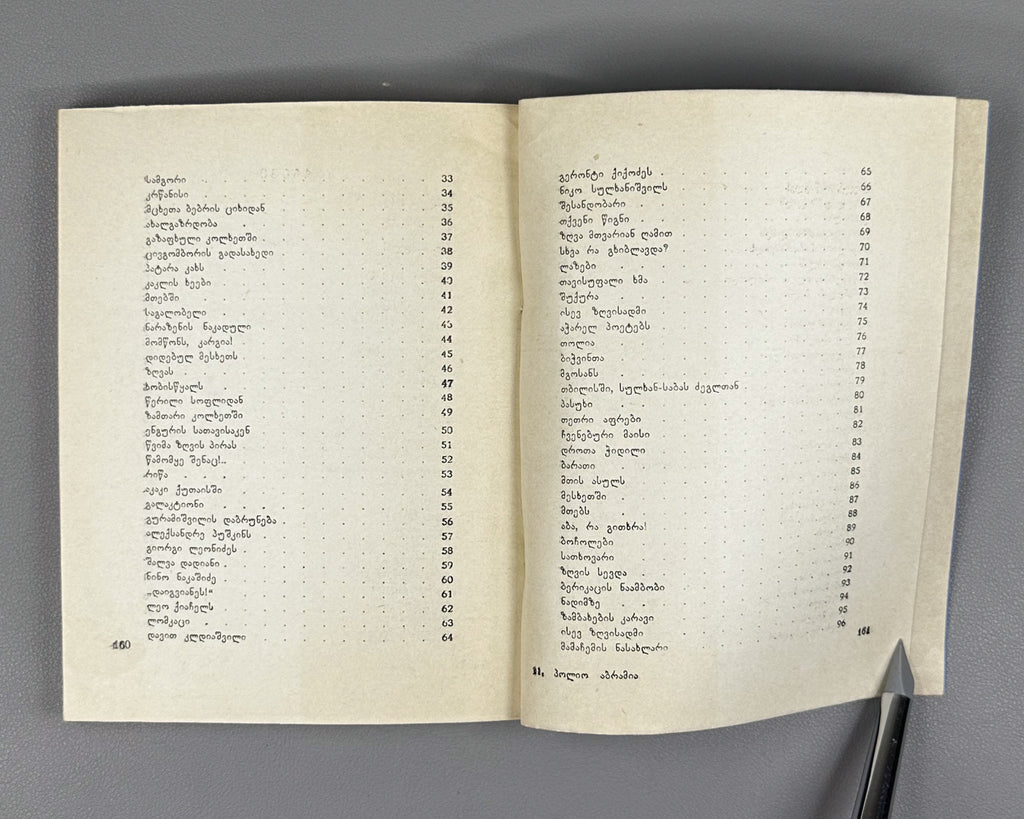 სამგორი . . . . 33
კრწანისი . . . . 34
მცხეთა ბებრის ციხიდან . . . . 35
ახალგაზრდობა . . . . 36
გაზაფხული კოლხეთში . . . . 37
ცივგომბორის გადასახედი . . . . 38
პატარა კახს . . . . 39
კაკლის ხეები . . . . 40
მთებში . . . . 41
საგალობელი . . . . 42
ნარაზენის ნაკადული . . . . 43
მომწონს, კარგია! . . . . 44
დიდებულ მესხეთს . . . . 45
ზღვას . . . . 46
ხობისწყალს . . . . 47
წერილი სოფლიდან . . . . 48
ზამთარი კოლხეთში . . . . 49
ენგურის სათავისაკენ . . . . 50
წვიმა ზღვის პირას . . . . 51
წამომყე შენაც!.. . . . . 52
რიწა . . . . 53
აკაკი ქუთაისში . . . . 54
გალაკტიონი . . . . 55
გურამიშვილის დაბრუნება . . . . 56
ალექსანდრე პუშკინს . . . . 57
გიორგი ლეონიძეს . . . . 58
შალვა დადიანი . . . . 59
ნინო ნაკაშიძე . . . . 60
„დაიგვიანეს!“ . . . . 61
ლეო ქიაჩელს . . . . 62
ლომკაცი . . . . 63
დავით კლდიაშვილი . . . . 64
160
გერონტი ქიქოძეს . . . . 65
ნიკო სულხანიშვილს . . . . 66
შესანდობარი . . . . 67
თქვენი წიგნი . . . . 68
ზღვა მთვარიან ღამით . . . . 69
სხვა რა გხიბლავდა? . . . . 70
ლაზები . . . . 71
თავისუფალი ხმა . . . . 72
შუქურა . . . . 73
ისევ ზღვისადმი . . . . 74
აჭარელ პოეტებს . . . . 75
თოლია . . . . 76
ბიჭვინთა . . . . 77
მგოსანს . . . . 78
თბილისში, სულხან-საბას ძეგლთან . . . . 79
პასუხი . . . . 80
თეთრი აფრები . . . . 81
ჩვენებური მაისი . . . . 82
დროთა ჭიდილი . . . . 83
ბარათი . . . . 84
მთის ასულს . . . . 85
მესხეთში . . . . 86
მთებს . . . . 87
აბა, რა გითხრა! . . . . 88
ბოჩოლები . . . . 89
სათხოვარი . . . . 90
ზღვის სევდა . . . . 91
ბერიკაცის ნაამბობი . . . . 92
ნადიმზე . . . . 93
ზამბახების კარავი . . . . 94
ისევ ზღვისადმი . . . . 95
მამაჩემის ნასახლარი . . . . 96
161
11. პოლიო აბრამია